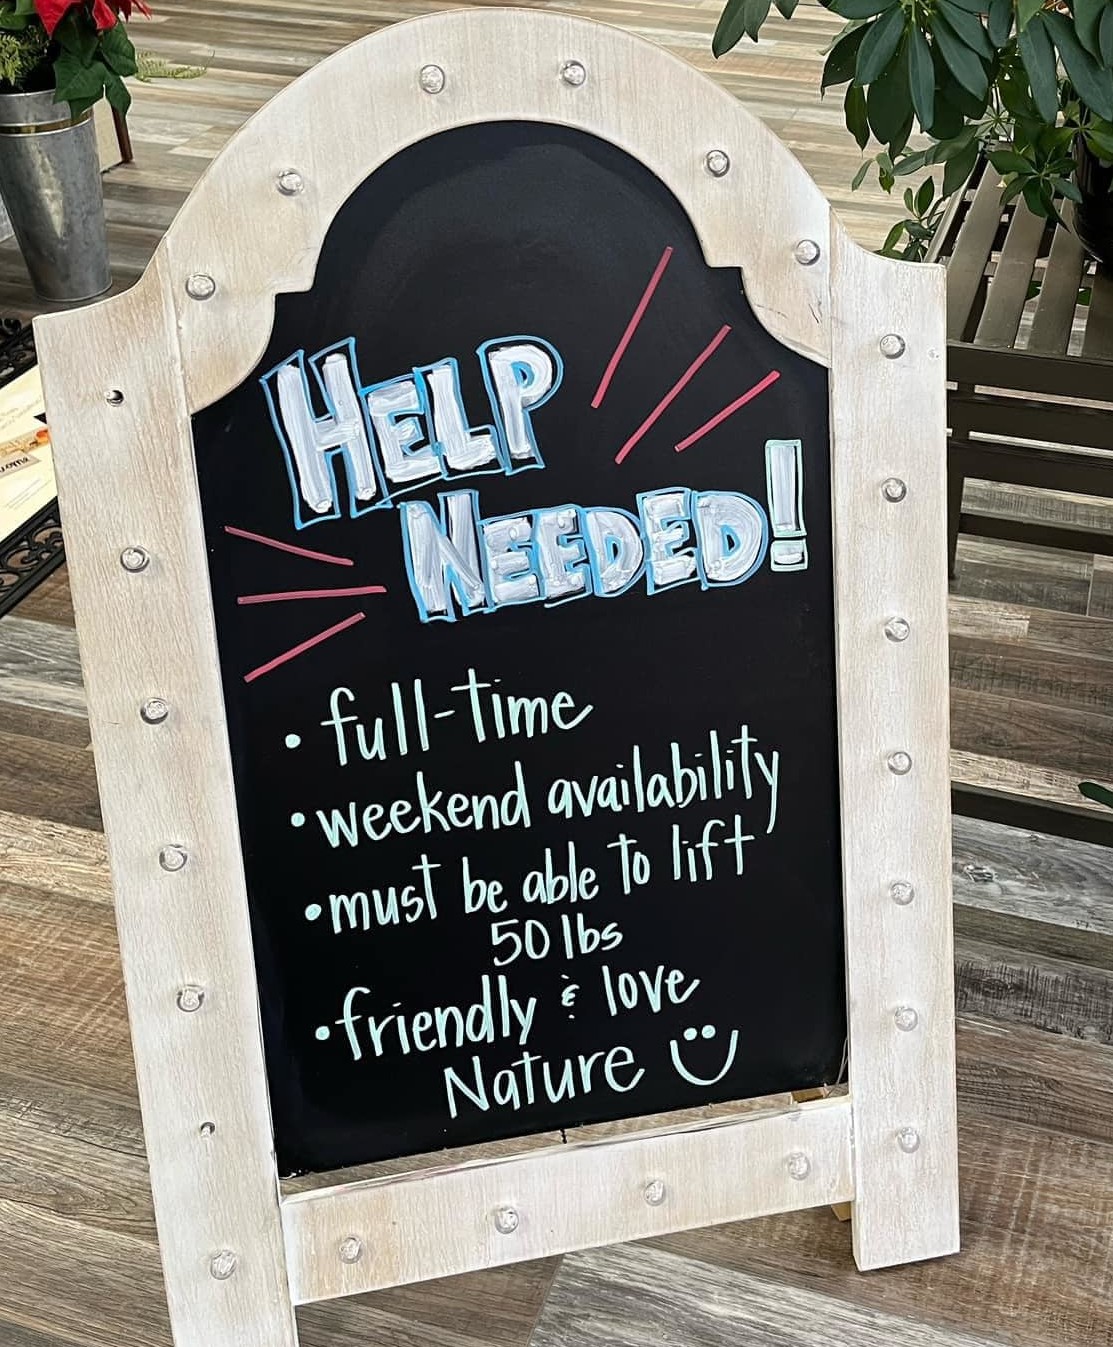 HELP
NEEDED!
• full-time
• weekend availability
• must be able to lift
50 lbs
• friendly & love
Nature